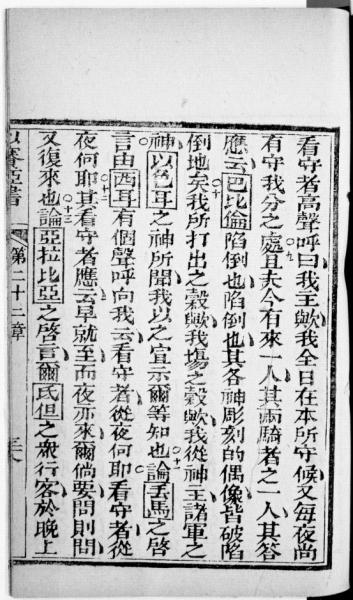 看守者高聲呼曰我王歟我全日在本所守候又每夜尚
有守我分之處且夫今有來一人其兩騎者之一人其答
應云巴比倫陷倒也陷倒也其各神彫刻的偶像皆破陷
倒地矣我所打出之穀歟我塲之穀歟我從神王諸軍之
神以色耳之神所聞我以之宜示爾等知也論丟馬之啓
言由西耳有個聲呼向我云看守者從夜何耶看守者從
夜何耶其看守者應云早就至而夜亦來爾倘要問則問
又復來也論亞拉比亞之啓言爾氏但之衆行客於晚上
以賽亞書 第二十二章